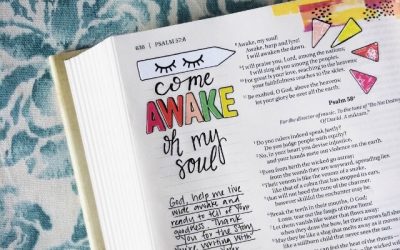 636 | PSALM 57:8
come
AWAKE
oh my
soul
God, help me live
wide awake and
ready to tell of your
goodness. Thank
you for the story
Awake, my soul!
Awake, harp and lyre!
I will awaken the dawn.
I will praise you, Lord, among the nations;
I will sing of you among the peoples.
For great is your love, reaching to the heavens;
your faithfulness reaches to the skies.
Be exalted, O God, above the heavens;
let your glory be over all the earth.
Psalm 58
For the director of music. To the tune of "Do Not Destroy."
Of David. A miktam.
Do you rulers indeed speak justly?
Do you judge people with equity?
No, in your heart you devise injustice,
and your hands mete out violence on the earth.
Even from birth the wicked go astray;
from the womb they are wayward, spreading lies.
Their venom is like the venom of a snake,
like that of a cobra that has stopped its ears,
that will not heed the tune of the charmer,
however skillful the enchanter may be.
Break the teeth in their mouths, O God;
Let them vanish like water that flows away;